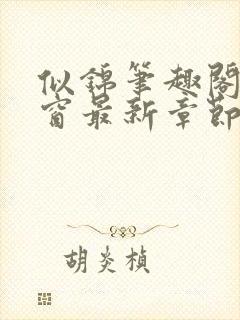 似锦笔趣阁
窗最新章节
胡炎桢